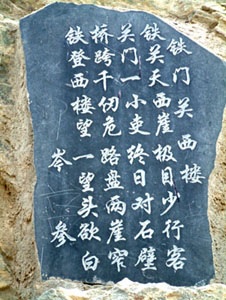 铁门关西楼
铁关天西崖极目少行客
关门一小吏终日对石壁
桥跨千仞危路盘两崖窄
试登西楼望一望头欲白
岑参